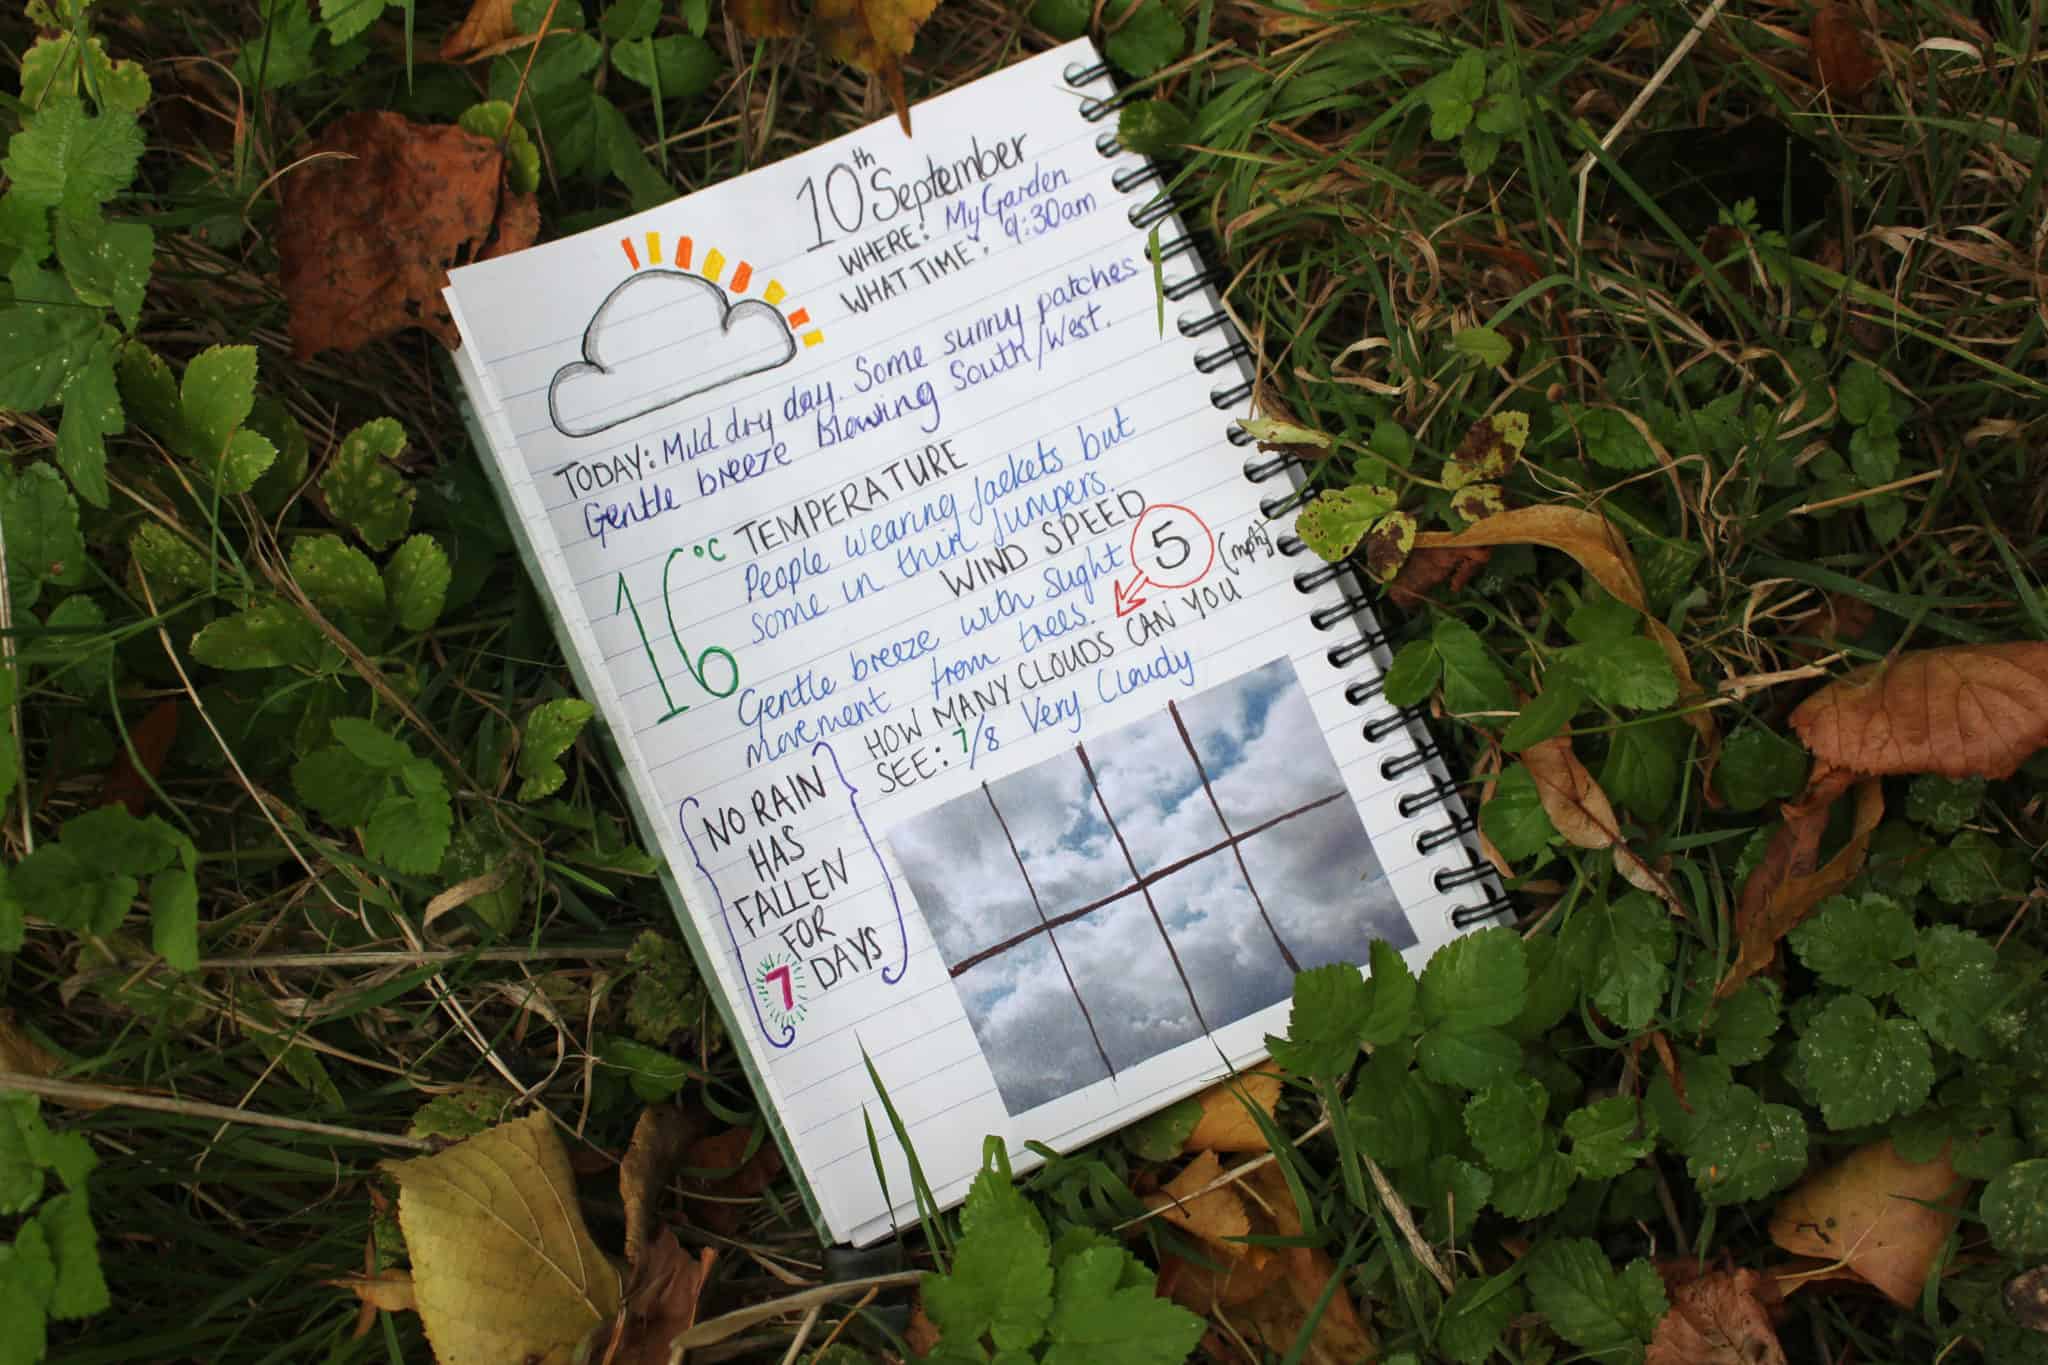 10th September
WHERE: My Garden
WHAT TIME: 9:30am
TODAY: Mild dry day. Some sunny patches
Gentle breeze blowing South/West.
16°C TEMPERATURE
People wearing jackets but
some in thin jumpers.
WIND SPEED 5 (mph)
Gentle breeze with slight
movement from trees.
HOW MANY CLOUDS CAN YOU
SEE: 7/8 Very Cloudy
NO RAIN
HAS
FALLEN
FOR
7 DAYS